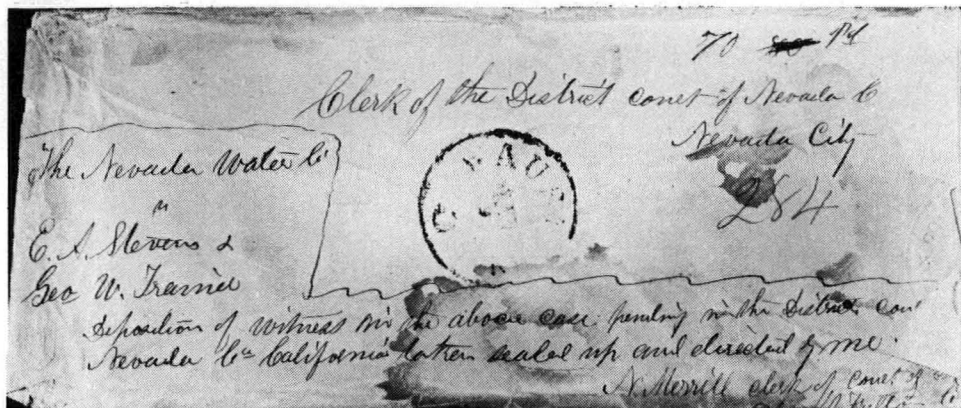 70 Pd
Clerk of the District Court of Nevada Co
Nevada City
284
The Nevada Water Co
vs
E. A. Stevens &
Geo W.
Deposition of witness in the above case pending in the District Cour
Nevada Co California taken sealed up and directed by me.
N. Merrill clerk of Court of